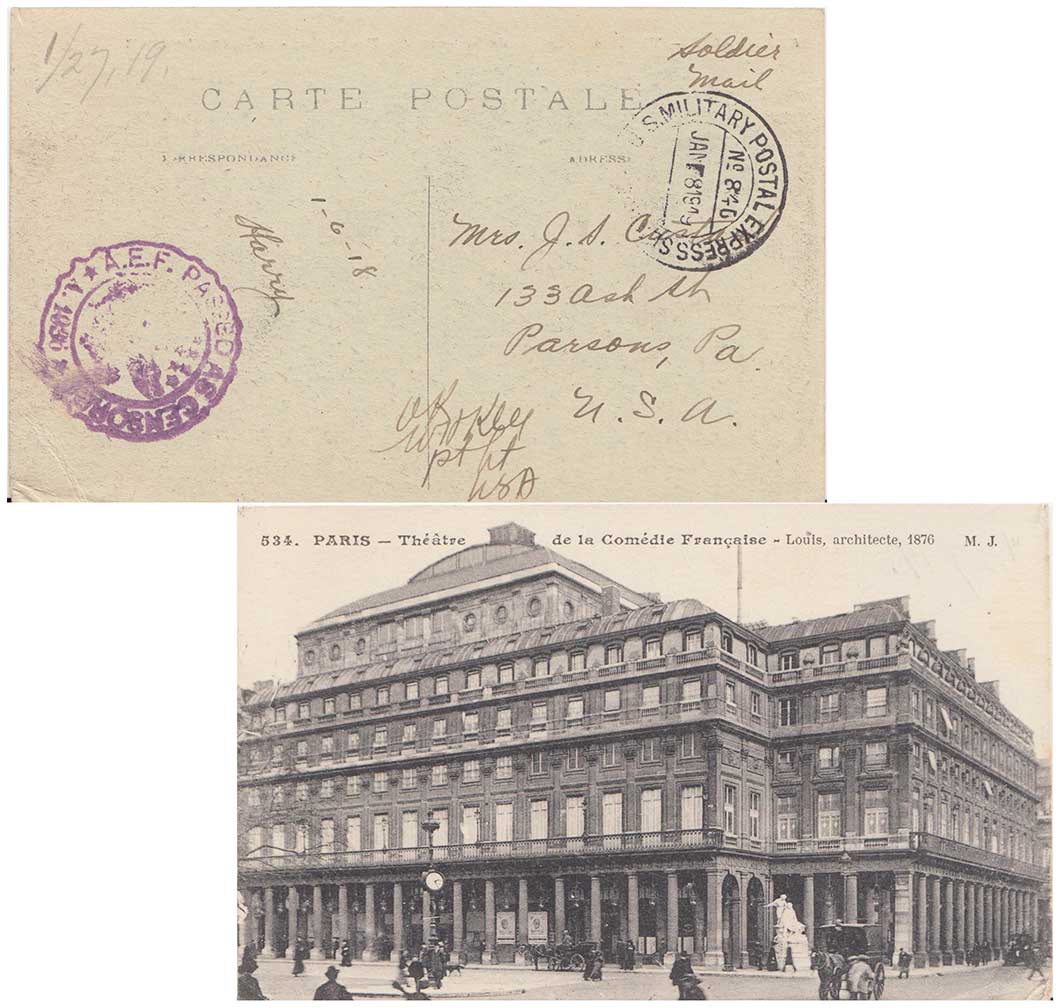 1/27,19.
Soldier
Mail
CARTE POSTALE
CORRESPONDANCE
ADRESSE
U.S. MILITARY POSTAL EXPRESS
No 846
JAN 8 1919
1-6-18
Harry
Mrs. J. S.
133 Ash St
Parsons, Pa.
U. S. A.
A.E.F. PASSED AS CENSORED
OK
534. PARIS — Théâtre de la Comédie Française - Louis, architecte, 1876 M. J.